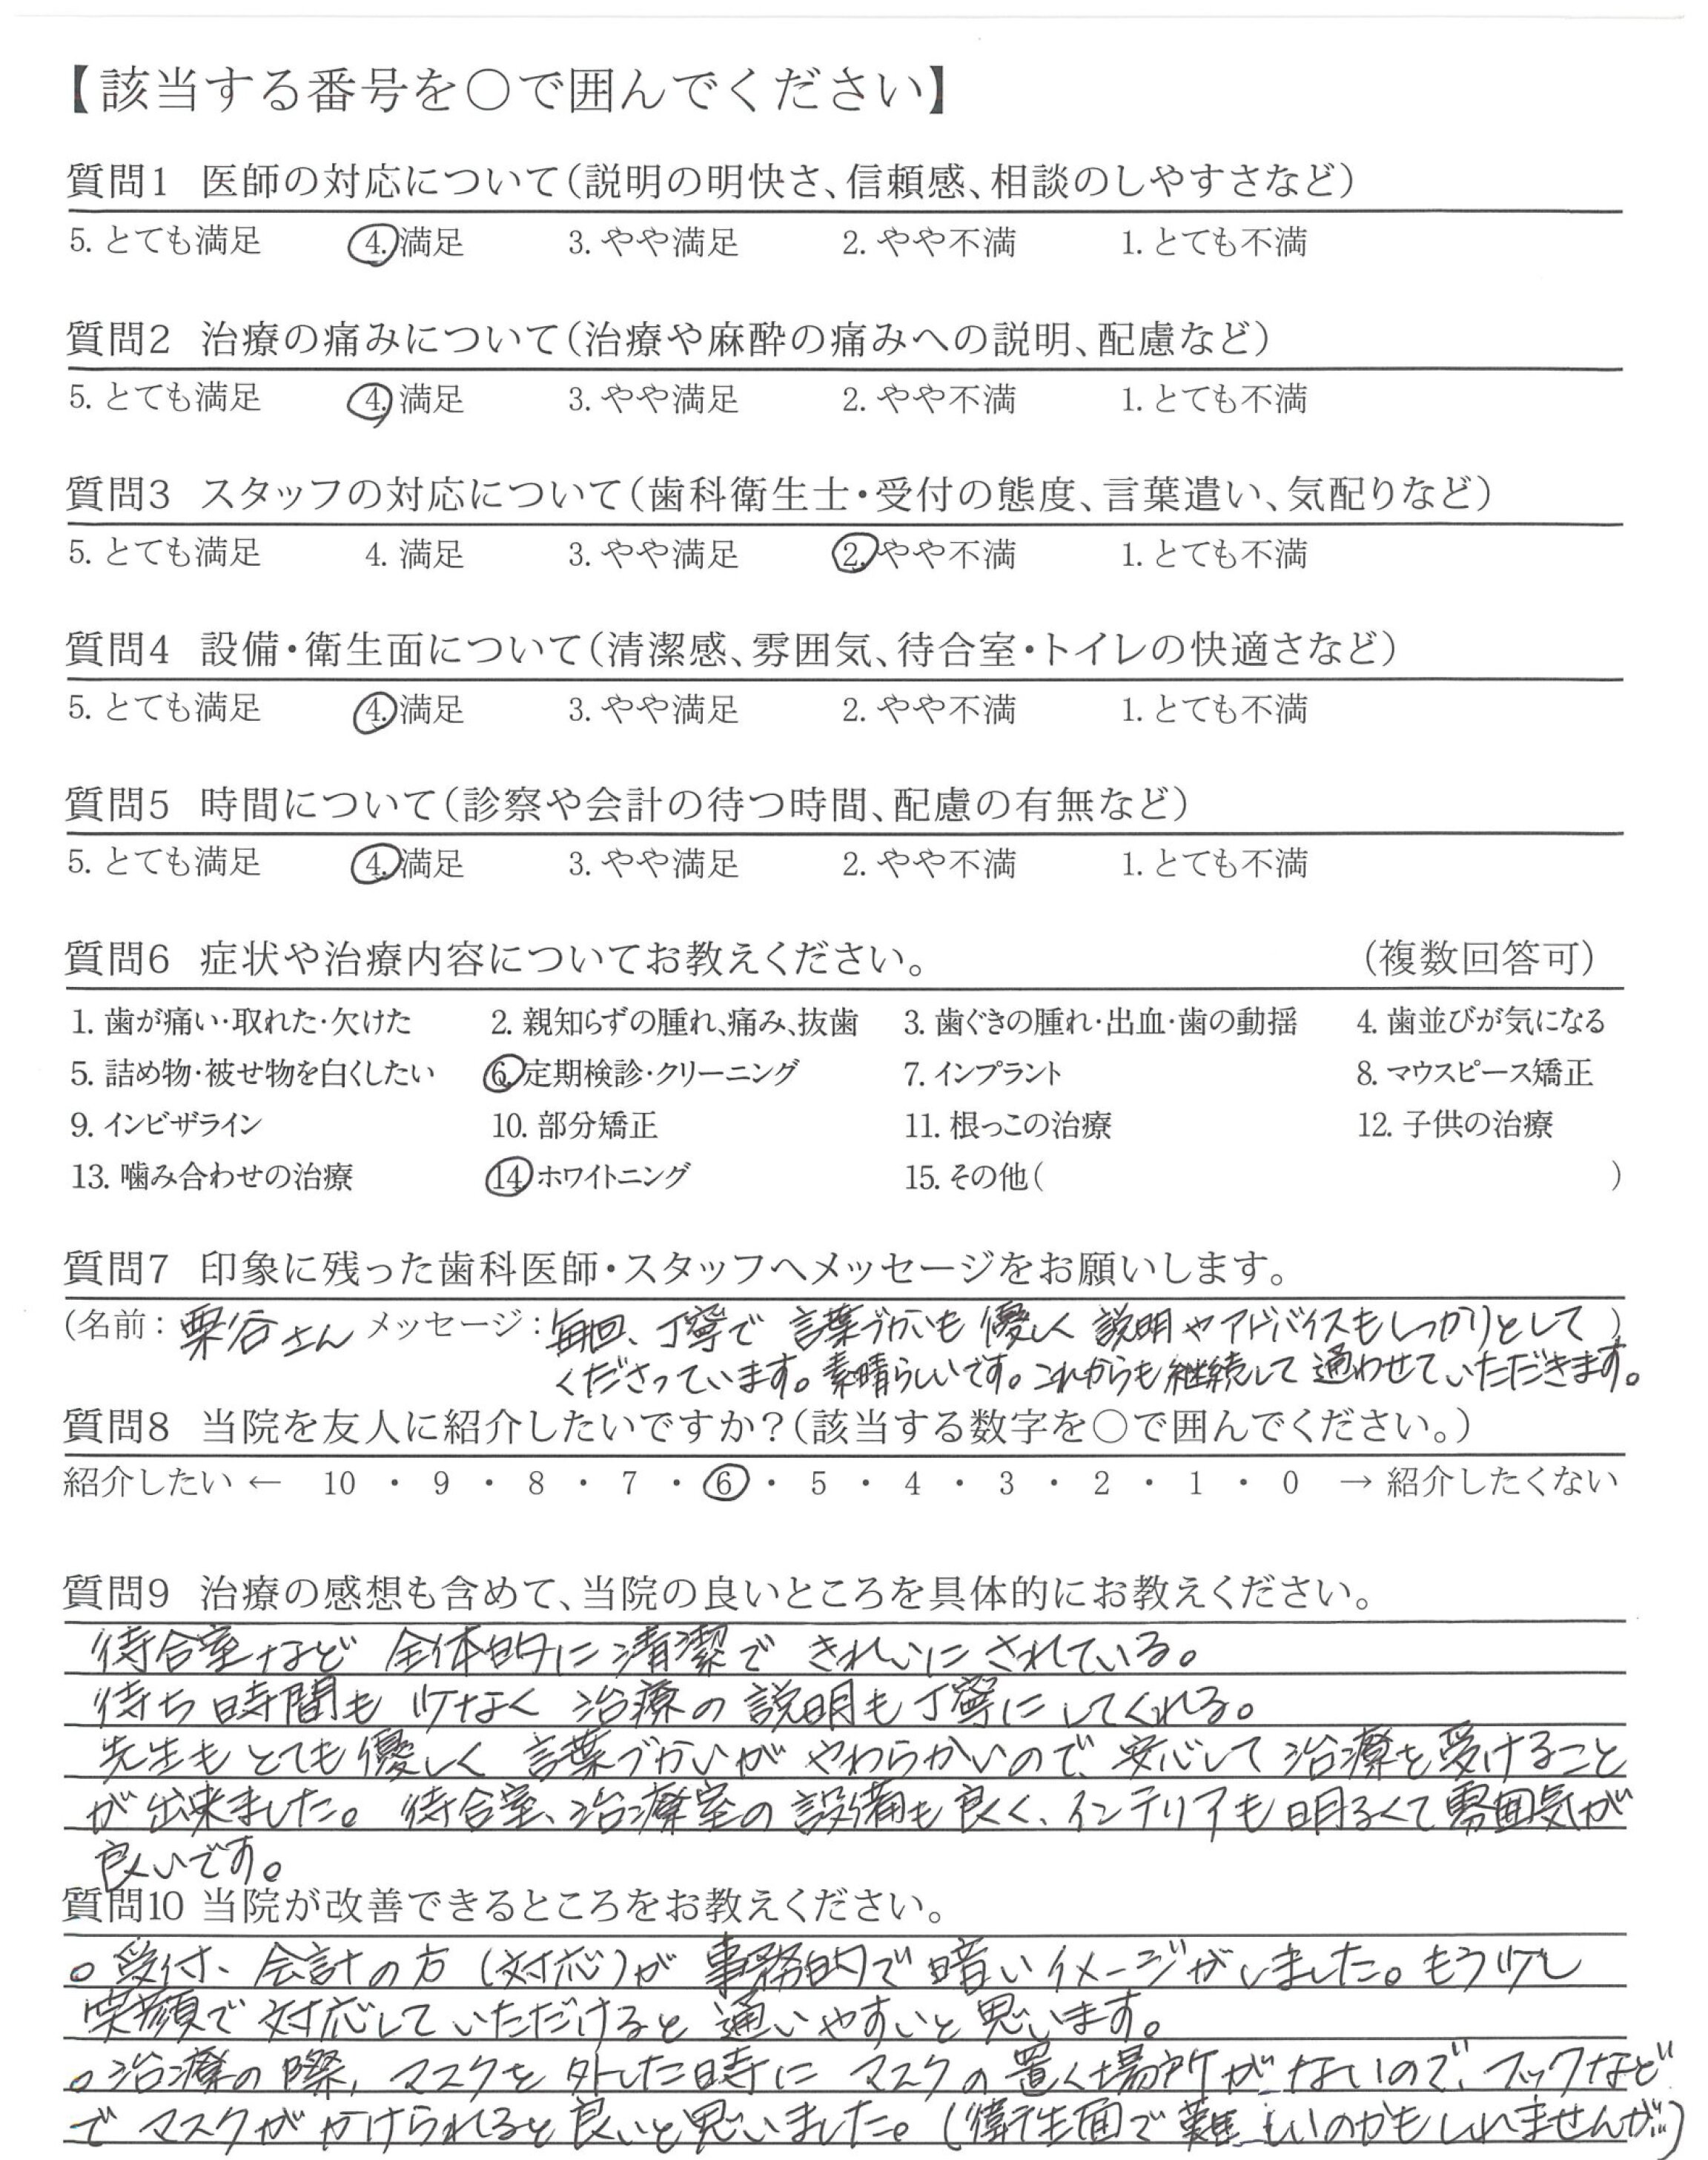 【該当する番号を〇で囲んでください】
質問1 医師の対応について(説明の明快さ、信頼感、相談のしやすさなど)
5. とても満足 4. 満足 3. やや満足 2. やや不満 1. とても不満
質問2 治療の痛みについて(治療や麻酔の痛みへの説明、配慮など)
5. とても満足 4. 満足 3. やや満足 2. やや不満 1. とても不満
質問3 スタッフの対応について(歯科衛生士・受付の態度、言葉遣い、気配りなど)
5. とても満足 4. 満足 3. やや満足 2. やや不満 1. とても不満
質問4 設備・衛生面について(清潔感、雰囲気、待合室・トイレの快適さなど)
5. とても満足 4. 満足 3. やや満足 2. やや不満 1. とても不満
質問5 時間について(診察や会計の待つ時間、配慮の有無など)
5. とても満足 4. 満足 3. やや満足 2. やや不満 1. とても不満
質問6 症状や治療内容についてお教えください。 (複数回答可)
1. 歯が痛い・取れた・欠けた 2. 親知らずの腫れ、痛み、抜歯 3. 歯ぐきの腫れ・出血・歯の動揺 4. 歯並びが気になる
5. 詰め物・被せ物を白くしたい 6. 定期検診・クリーニング 7. インプラント 8. マウスピース矯正
9. インビザライン 10. 部分矯正 11. 根っこの治療 12. 子供の治療
13. 噛み合わせの治療 14. ホワイトニング 15. その他( )
質問7 印象に残った歯科医師・スタッフへメッセージをお願いします。
(名前: 栗谷さん メッセージ: 毎回、丁寧で 言葉づかいも 優しく 説明やアドバイスもしっかりとして )
くださっています。素晴らしいです。これからも継続して 通わせていただきます。
質問8 当院を友人に紹介したいですか?(該当する数字を〇で囲んでください。)
紹介したい ← 10 ・ 9 ・ 8 ・ 7 ・ 6 ・ 5 ・ 4 ・ 3 ・ 2 ・ 1 ・ 0 → 紹介したくない
質問9 治療の感想も含めて、当院の良いところを具体的にお教えください。
待合室など 全体的に 清潔で きれいに されている。
待ち時間も 少なく 治療の 説明も丁寧に してくれる。
先生も とても優しく 言葉づかいが やわらかいので、安心して 治療を受けること
が出来ました。 待合室、治療室の 設備も良く、インテリアも 明るくて雰囲気が
良いです。
質問10 当院が改善できるところをお教えください。
○受付、会計の方 (対応)が 事務的で 暗いイメージがしました。もう少し
笑顔で 対応して いただけると 通いやすいと 思います。
○治療の際、マスクを 外した時に マスクの 置く場所が ないので、フックなど
で マスクが かけられると良いと思いました。(衛生面で難しいのかもしれませんが…)